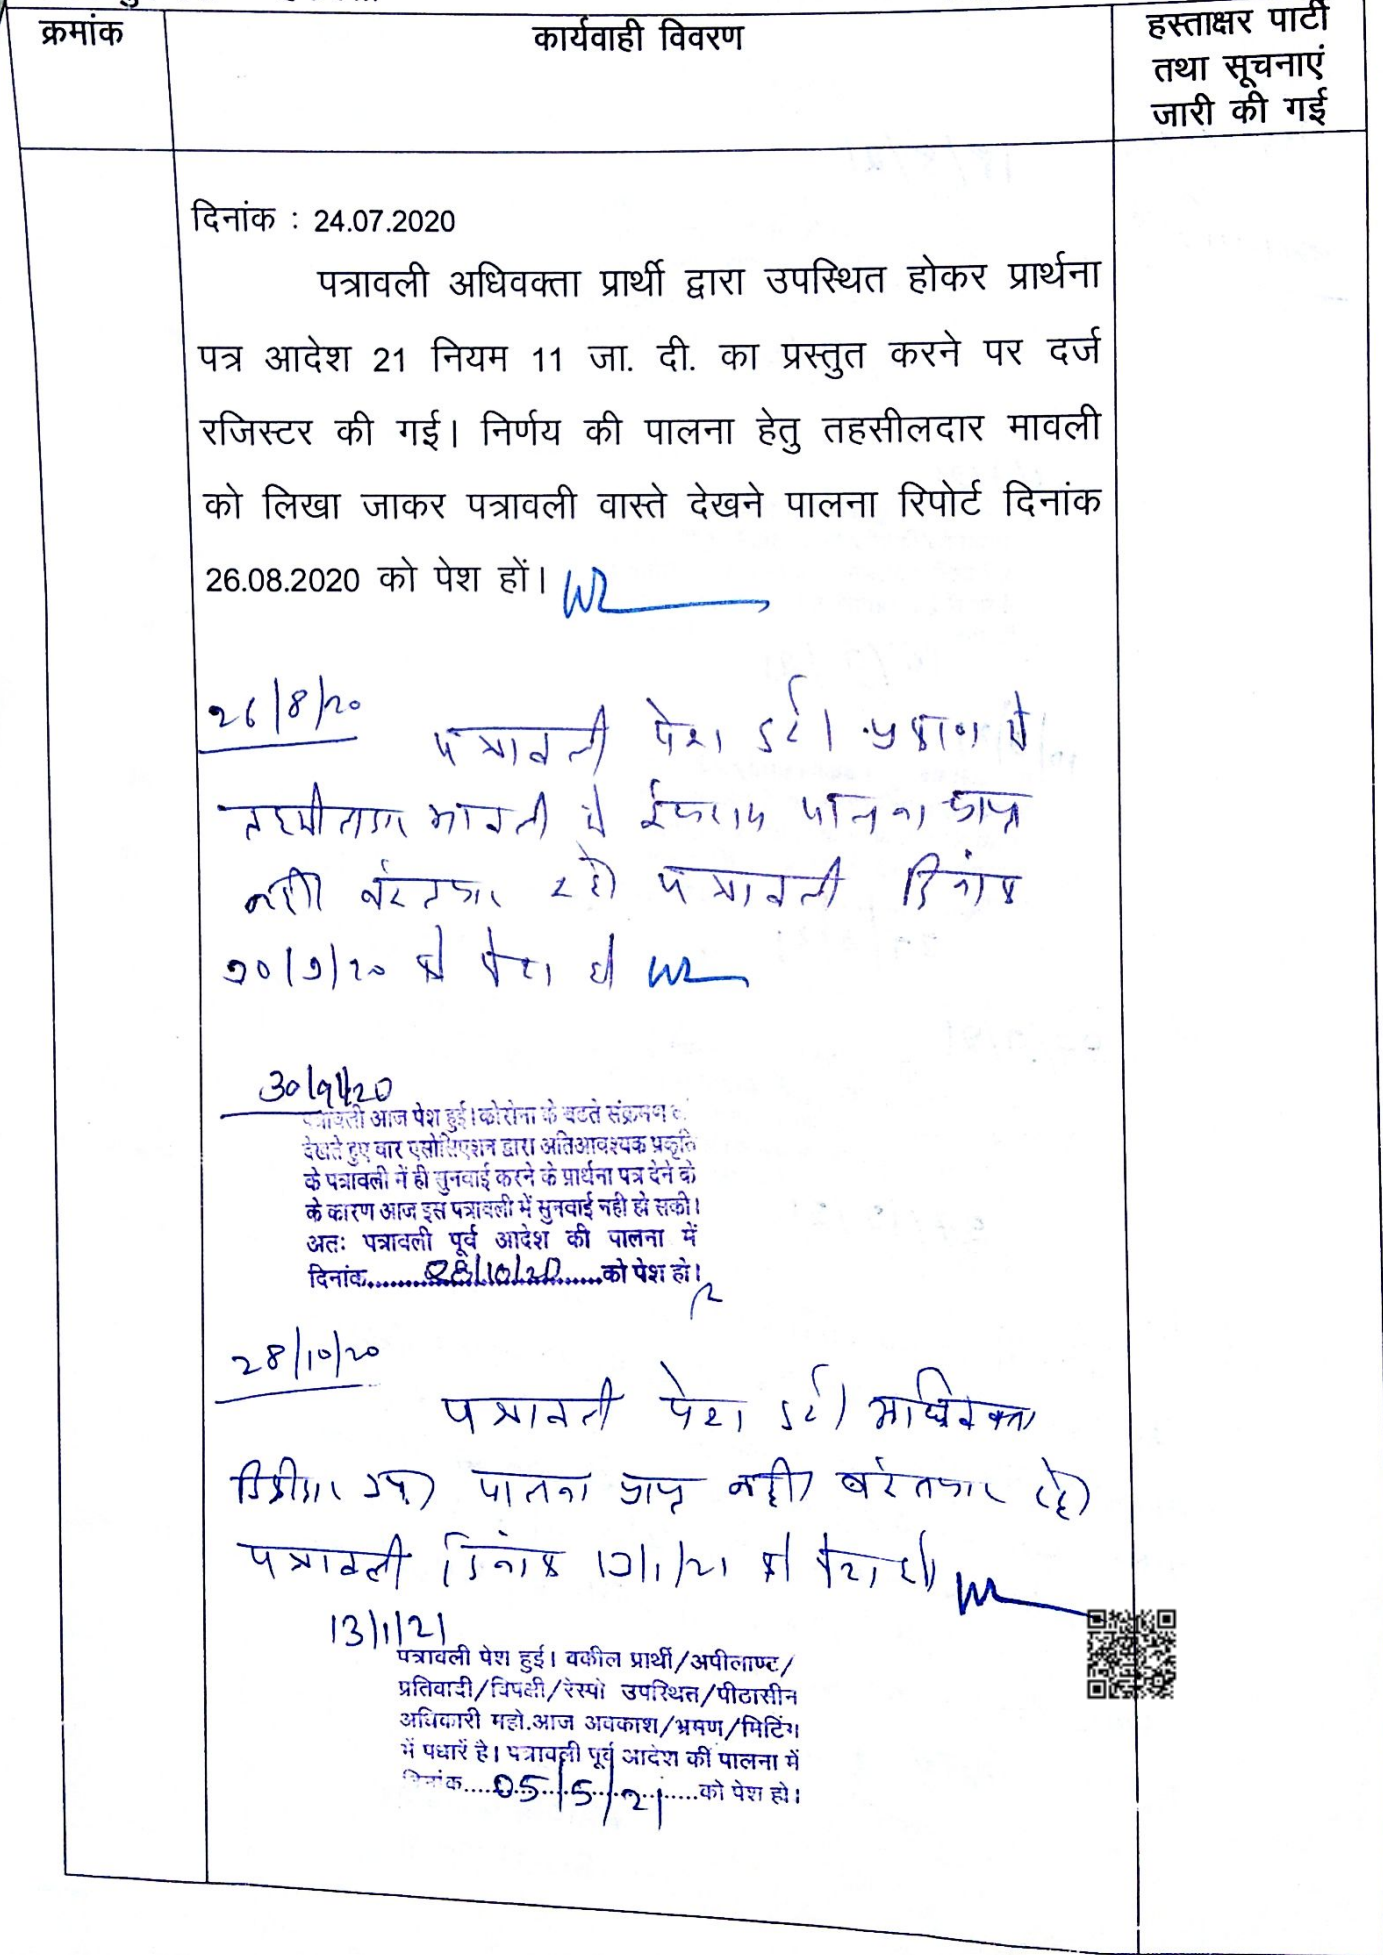 क्रमांक
कार्यवाही विवरण
हस्ताक्षर पार्टी
तथा सूचनाएं
जारी की गई
दिनांक : 24.07.2020
पत्रावली अधिवक्ता प्रार्थी द्वारा उपस्थित होकर प्रार्थना
पत्र आदेश 21 नियम 11 जा. दी. का प्रस्तुत करने पर दर्ज
रजिस्टर की गई। निर्णय की पालना हेतु तहसीलदार मावली
को लिखा जाकर पत्रावली वास्ते देखने पालना रिपोर्ट दिनांक
26.08.2020 को पेश हों।
26/8/20
पत्रावली पेश हुई। प्रकरण में
तहसीलदार मावली से पालना प्राप्त
नहीं इंतजार रहे पत्रावली दिनांक
30/9/20 को पेश हो
30/9/20
पत्रावली आज पेश हुई। कोरोना के बढते संक्रमण को
देखते हुए बार एसोसिएशन द्वारा अतिआवश्यक प्रकृति
के पत्रावली में ही सुनवाई करने के प्रार्थना पत्र देने के
के कारण आज इस पत्रावली में सुनवाई नही हो सकी।
अतः पत्रावली पूर्व आदेश की पालना में
दिनांक.....28/10/20.....को पेश हो।
28/10/20
पत्रावली पेश हुई। अधिवक्ता
डिक्रीदार उप0 पालना प्राप्त नहीं इंतजार रहे
पत्रावली दिनांक 13/1/21 को पेश हो
13/1/21
पत्रावली पेश हुई। वकील प्रार्थी/अपीलाण्ट/
प्रतिवादी/विपक्षी/रेस्पो उपस्थित/पीठासीन
अधिकारी महो.आज अवकाश/भ्रमण/मिटिंग
में पधारें है। पत्रावली पूर्व आदेश की पालना में
दिनांक.....05/5/21.....को पेश हो।